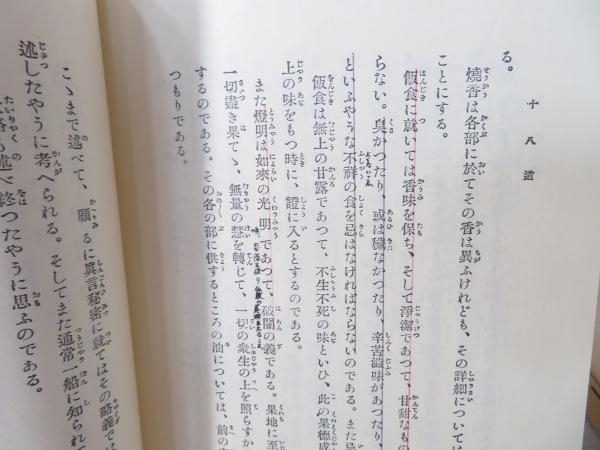 十八道
る。
燒香は各部に於てその香は異ふけれども、その詳細については
ことにする。
飯食に就いては香味を保ち、そして淨潔であつて、甘甜なもの
らない。臭かつたり、或は穢なかつたり、辛苦澁味があつたり、
といふやうな不祥の食を忌はなければならないのである。また忌
飯食は無上の甘露であつて、不生不死の味といひ、此の果德成
上の味をもつ時に、證に入るとするのである。
また燈明は如來の光明であつて、破闇の義である。果地に至
一切盡き果てゝ、無量の慧を轉じて、一切の衆生の上を照らすか
するのである。その各の部に供するところの油については、前の
つもりである。
こゝまで述べて、顧るに眞言秘密に就てはその略義では
述したやうに考へられる。そしてまた通常一船に知られて
述べ終つたやうに思ふのである。